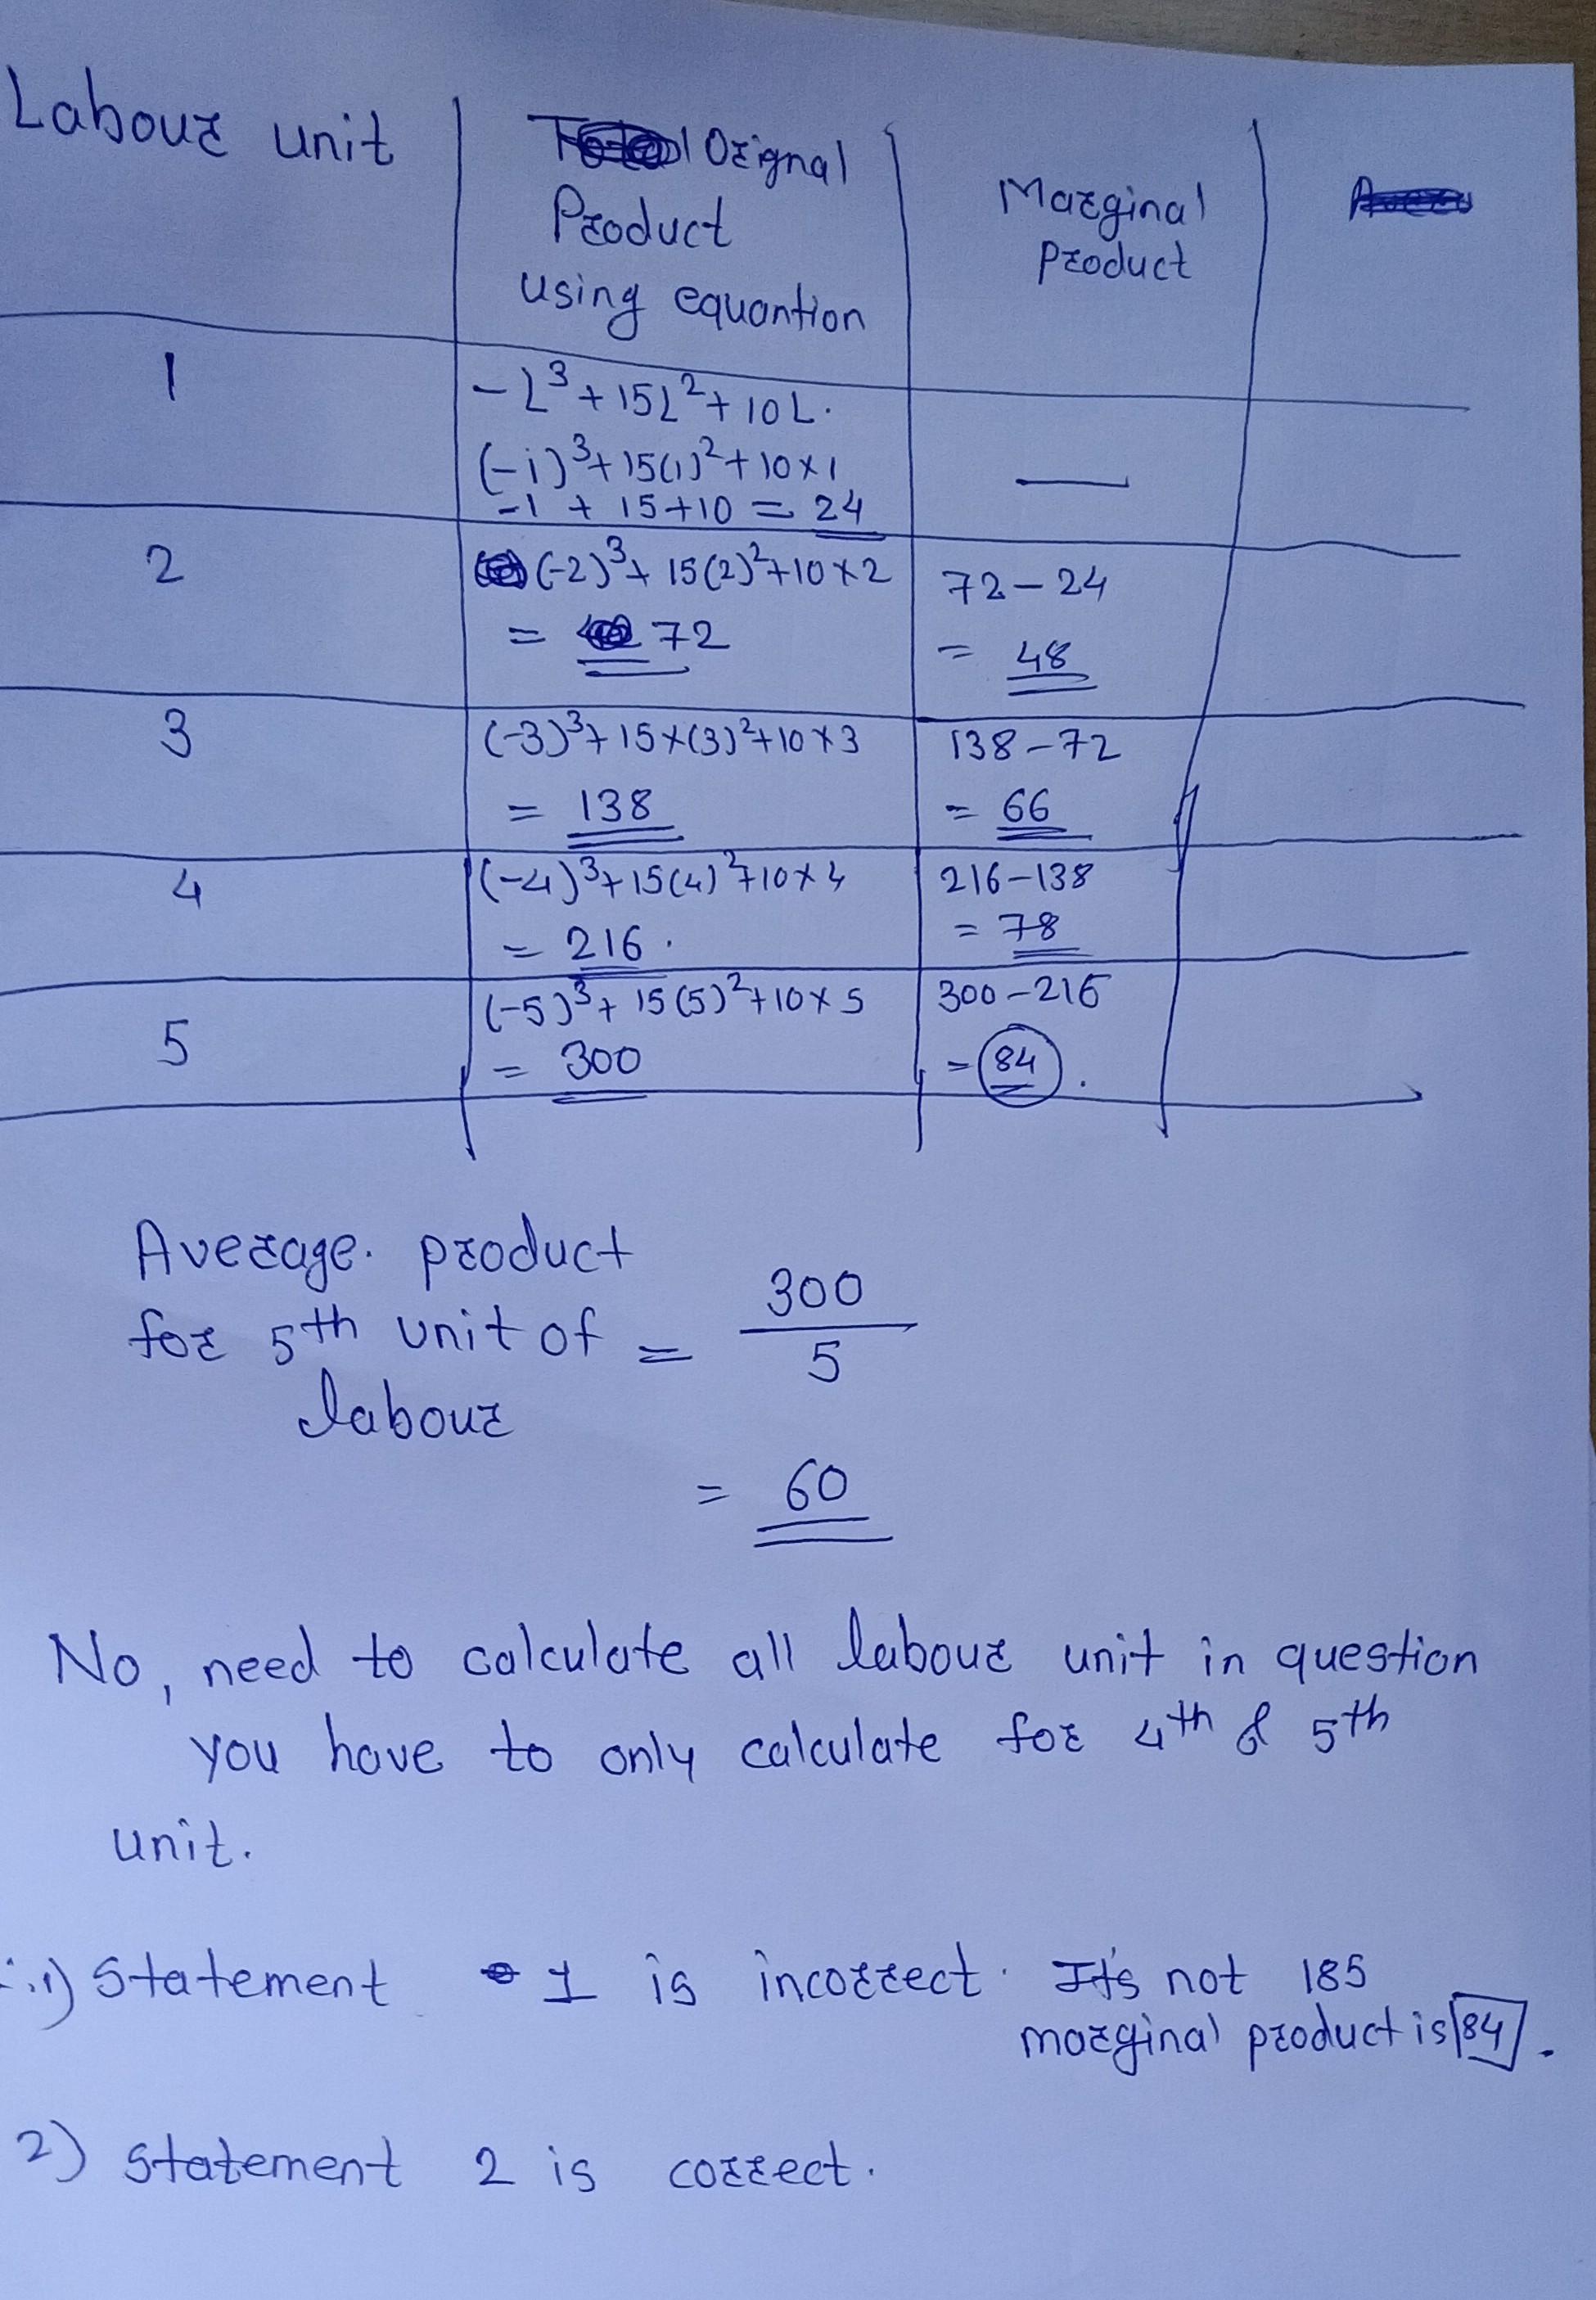 Labour unit | Orignal Product using equantion | Marginal Product
1 | -L³ + 15L² + 10L.
(-1)³ + 15(1)² + 10×1
-1 + 15+10 = 24 | —
2 | (-2)³ + 15(2)² + 10×2 | 72-24
= 72 | = 48
3 | (-3)³ + 15×(3)² + 10×3 | 138-72
= 138 | = 66
4 | (-4)³ + 15(4)² + 10×4 | 216-138
= 216. | = 78
5 | (-5)³ + 15(5)² + 10×5 | 300-216
= 300 | = 84.
Average. product
for 5th unit of = 300/5
labour
= 60
No, need to calculate all labour unit in question
you have to only calculate for 4th & 5th
unit.
∴ 1) Statement 1 is incorrect. It's not 185
marginal product is 84.
2) statement 2 is correct.